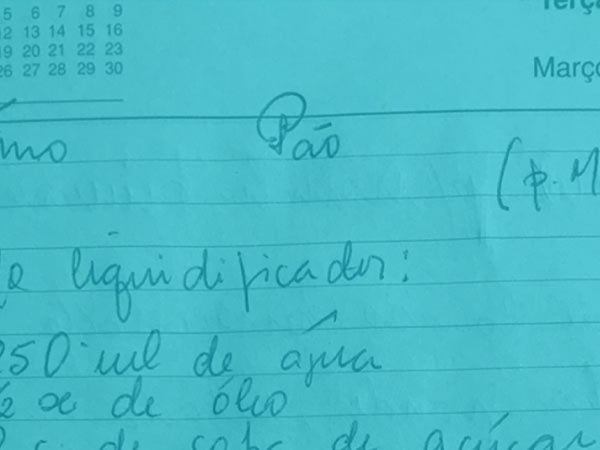 5 6 7 8 9
12 13 14 15 16
19 20 21 22 23
26 27 28 29 30
Terç
Março
Pão
(p. M
liquidificador:
250 ml de água
½ xc de óleo
c. de açúcar